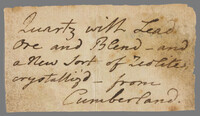 Quartz with Lead
Ore and Blend - and
a New Sort of Zeolite
crystalliz'd - from
Cumberland.